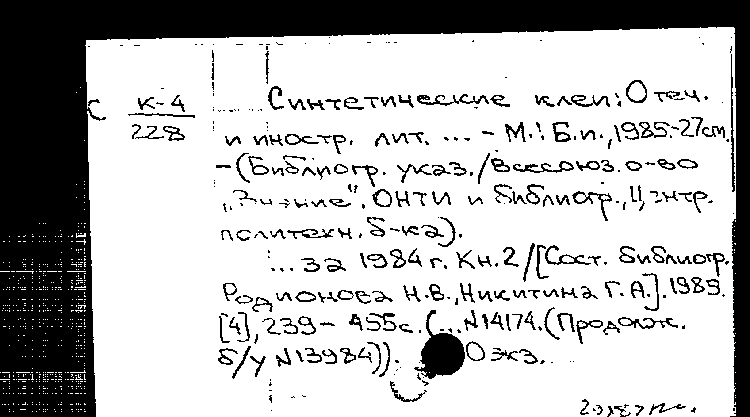 С К-4
228
Синтетические клеи: Отеч.
и иностр. лит. ... - М.: Б.и., 1985.-27см.
-(Библиогр. указ./Всесоюз. о-во
„Знание". ОНТИ и библиогр., Центр.
политехн. б-ка).
... за 1984 г. Кн.2/[Сост. библиогр.
Родионова Н.В., Никитина Г.А.]. 1985.
[4], 239-455с. (...N14174. (Продолж.
б/у N13984)). 0 экз.